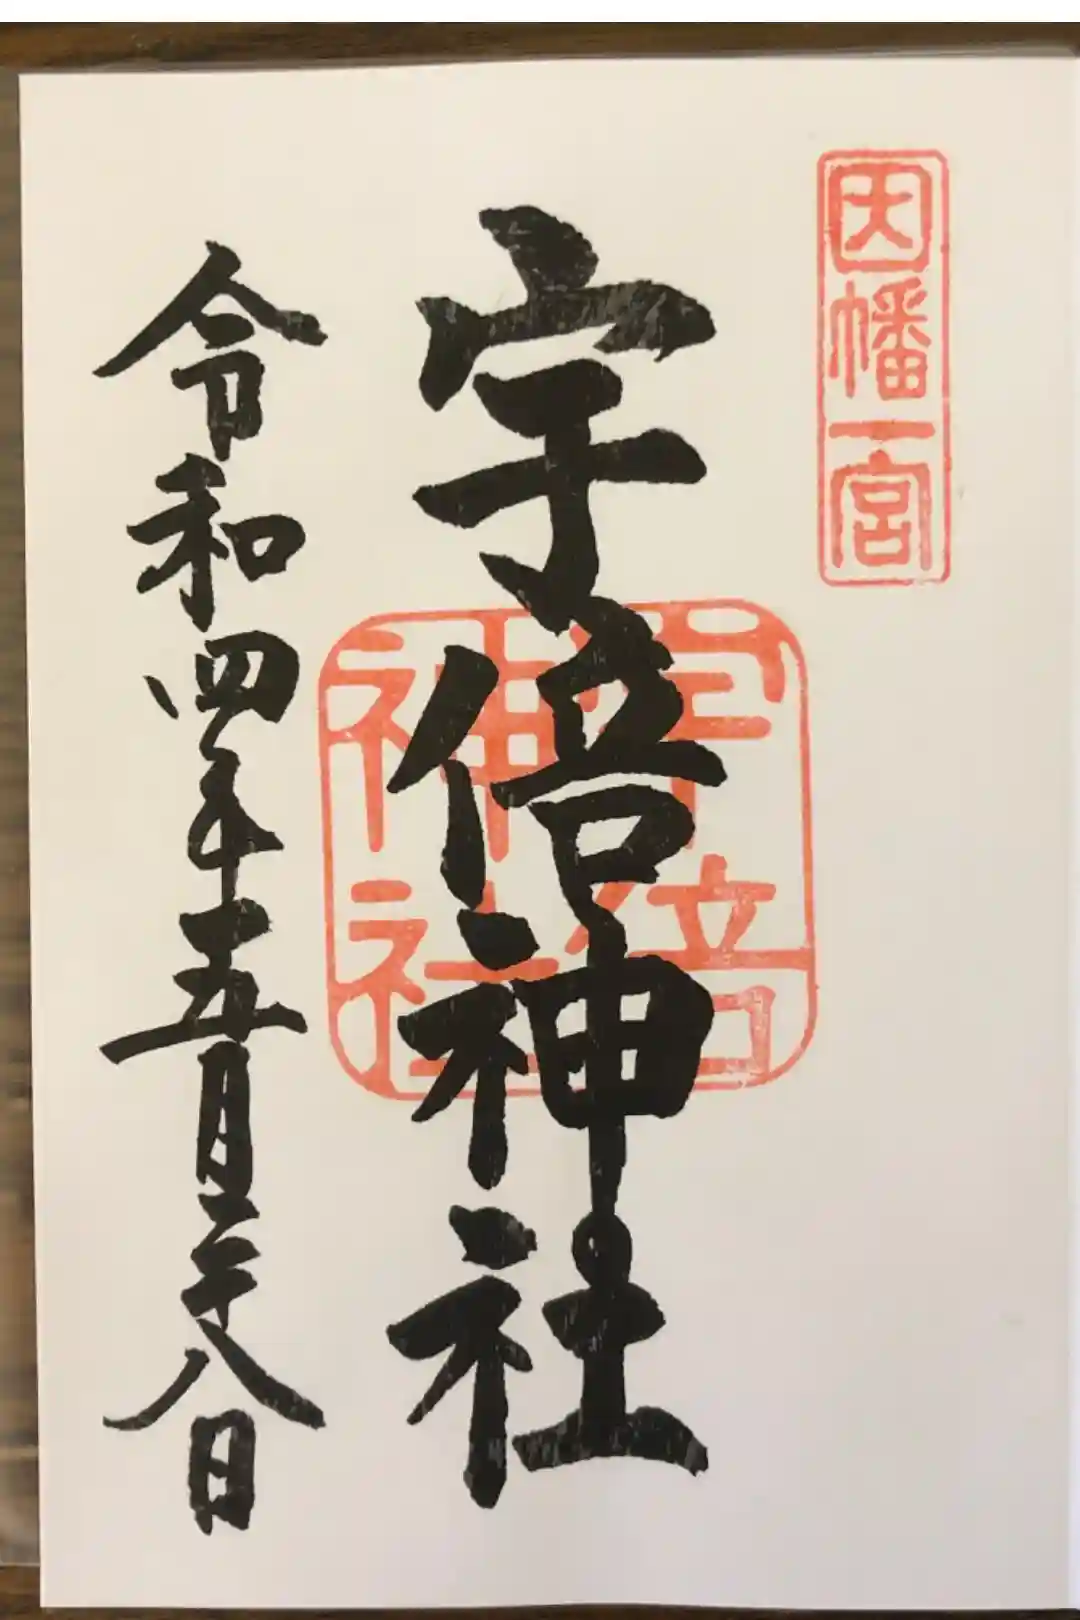 因幡一宮
宇倍神社
宇倍
神社
令和四年五月二十八日